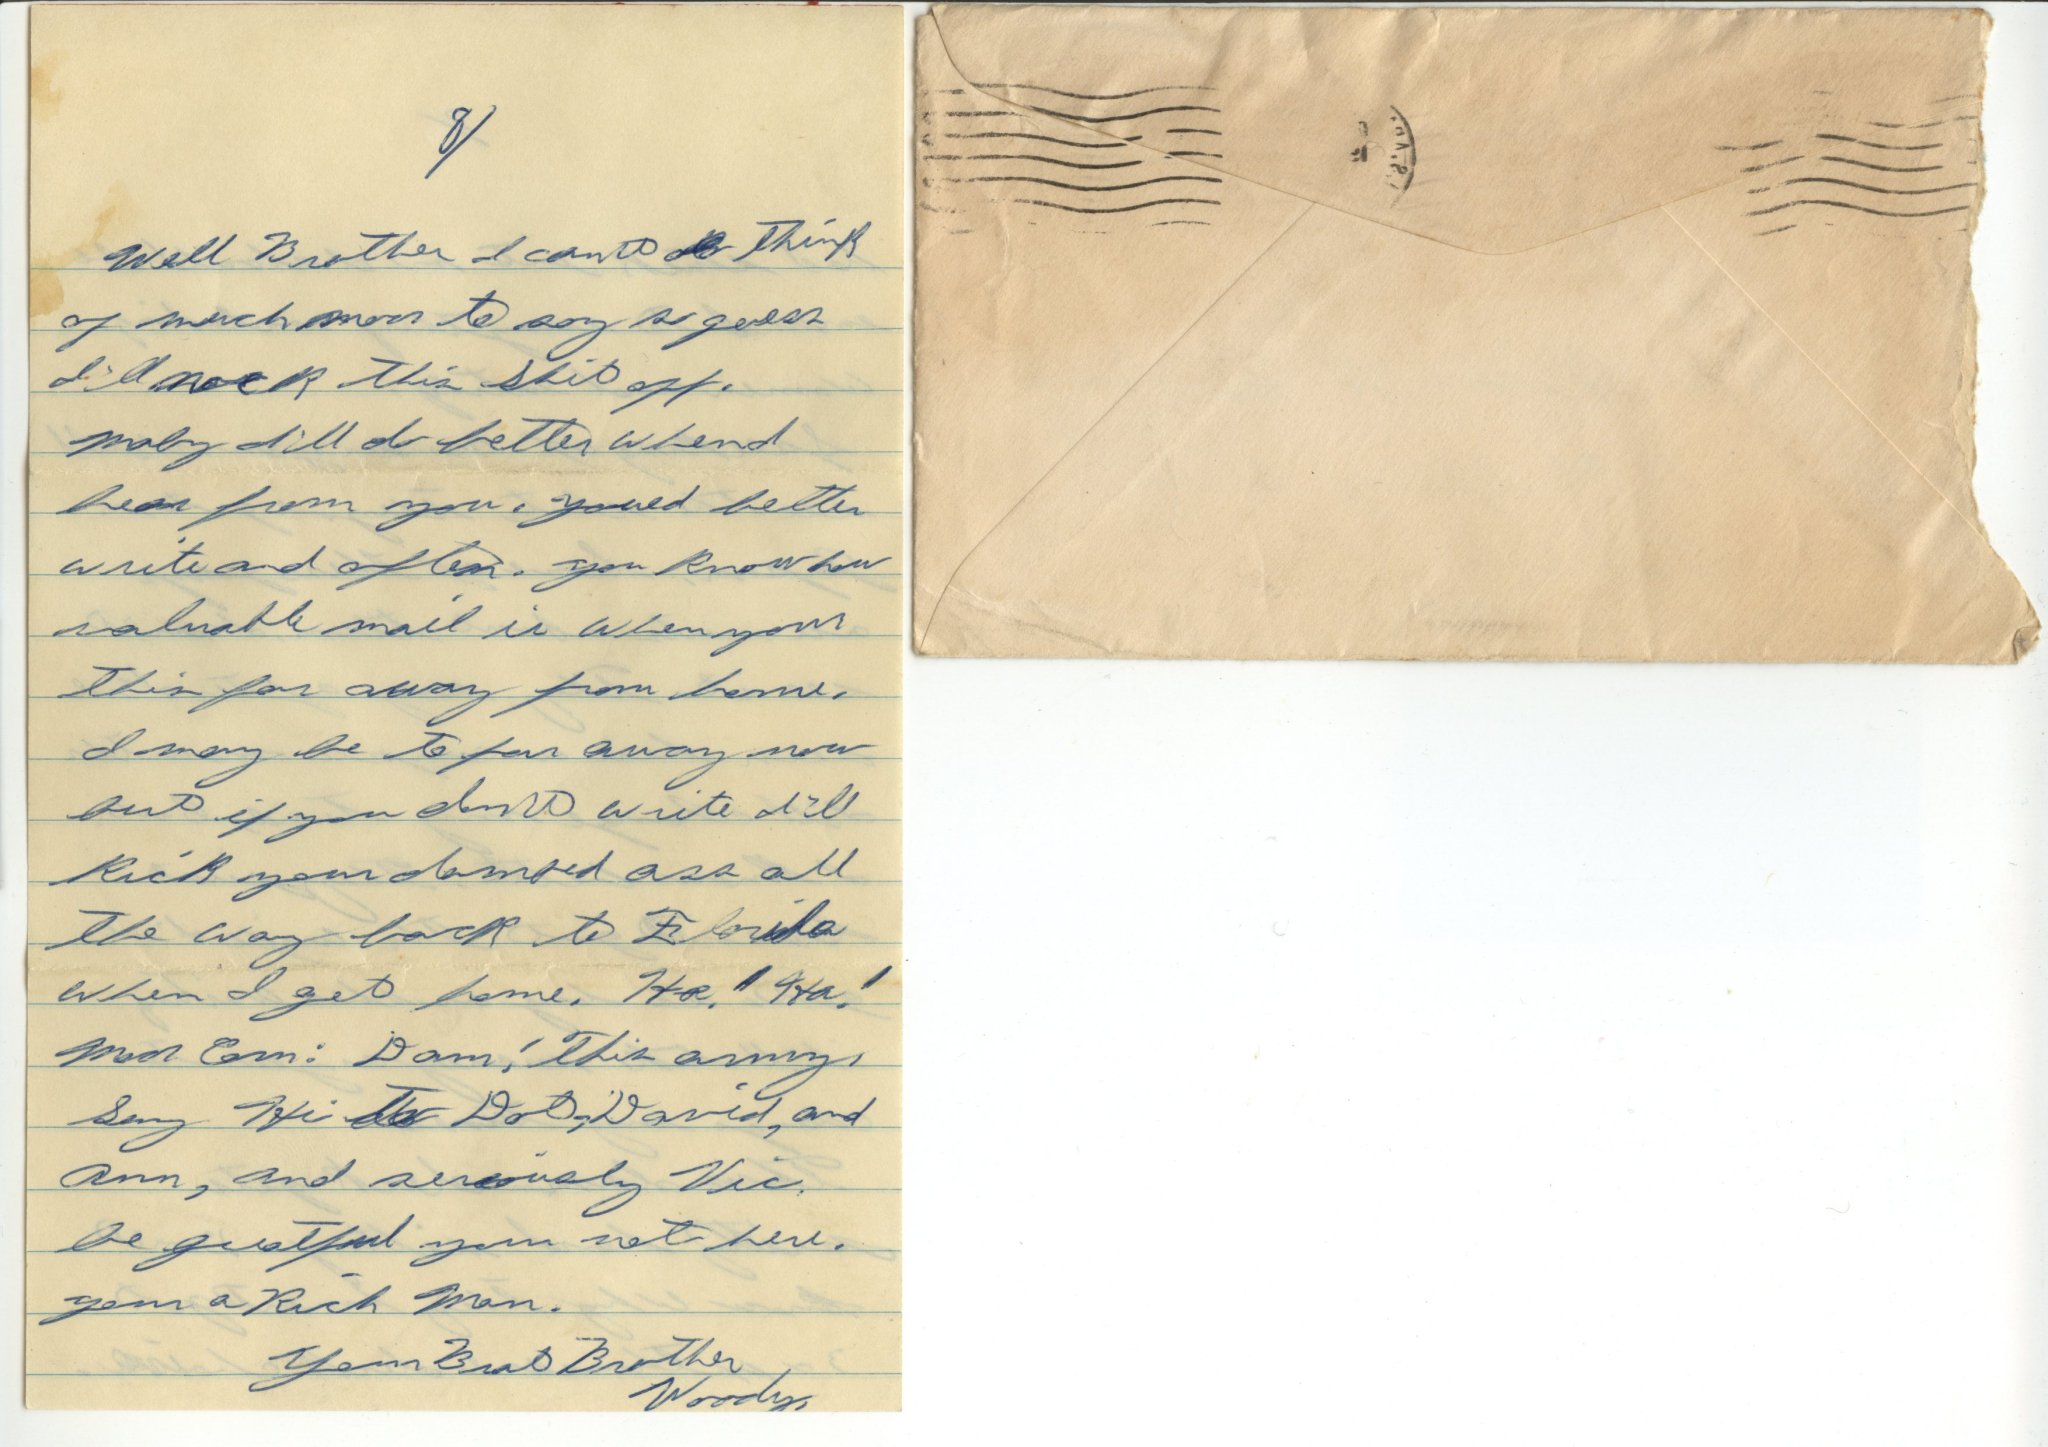 8/
Well Brother I can't think
of much more to say so guess
I'll nock this shit off.
Maby I'll do better when I
hear from you. You'ed better
write and often. You know how
valuable mail is when your
this far away from home.
I may be to far away now
but if you don't write I'll
kick your damned ass all
the way back to Florida
when I get home. Ha! Ha!
Dam! This army.
Say Hi to Dot, David, and
Ann, and seriously Vic.
be your not here.
your a Rich Man.
Your Brat Brother
Woody.